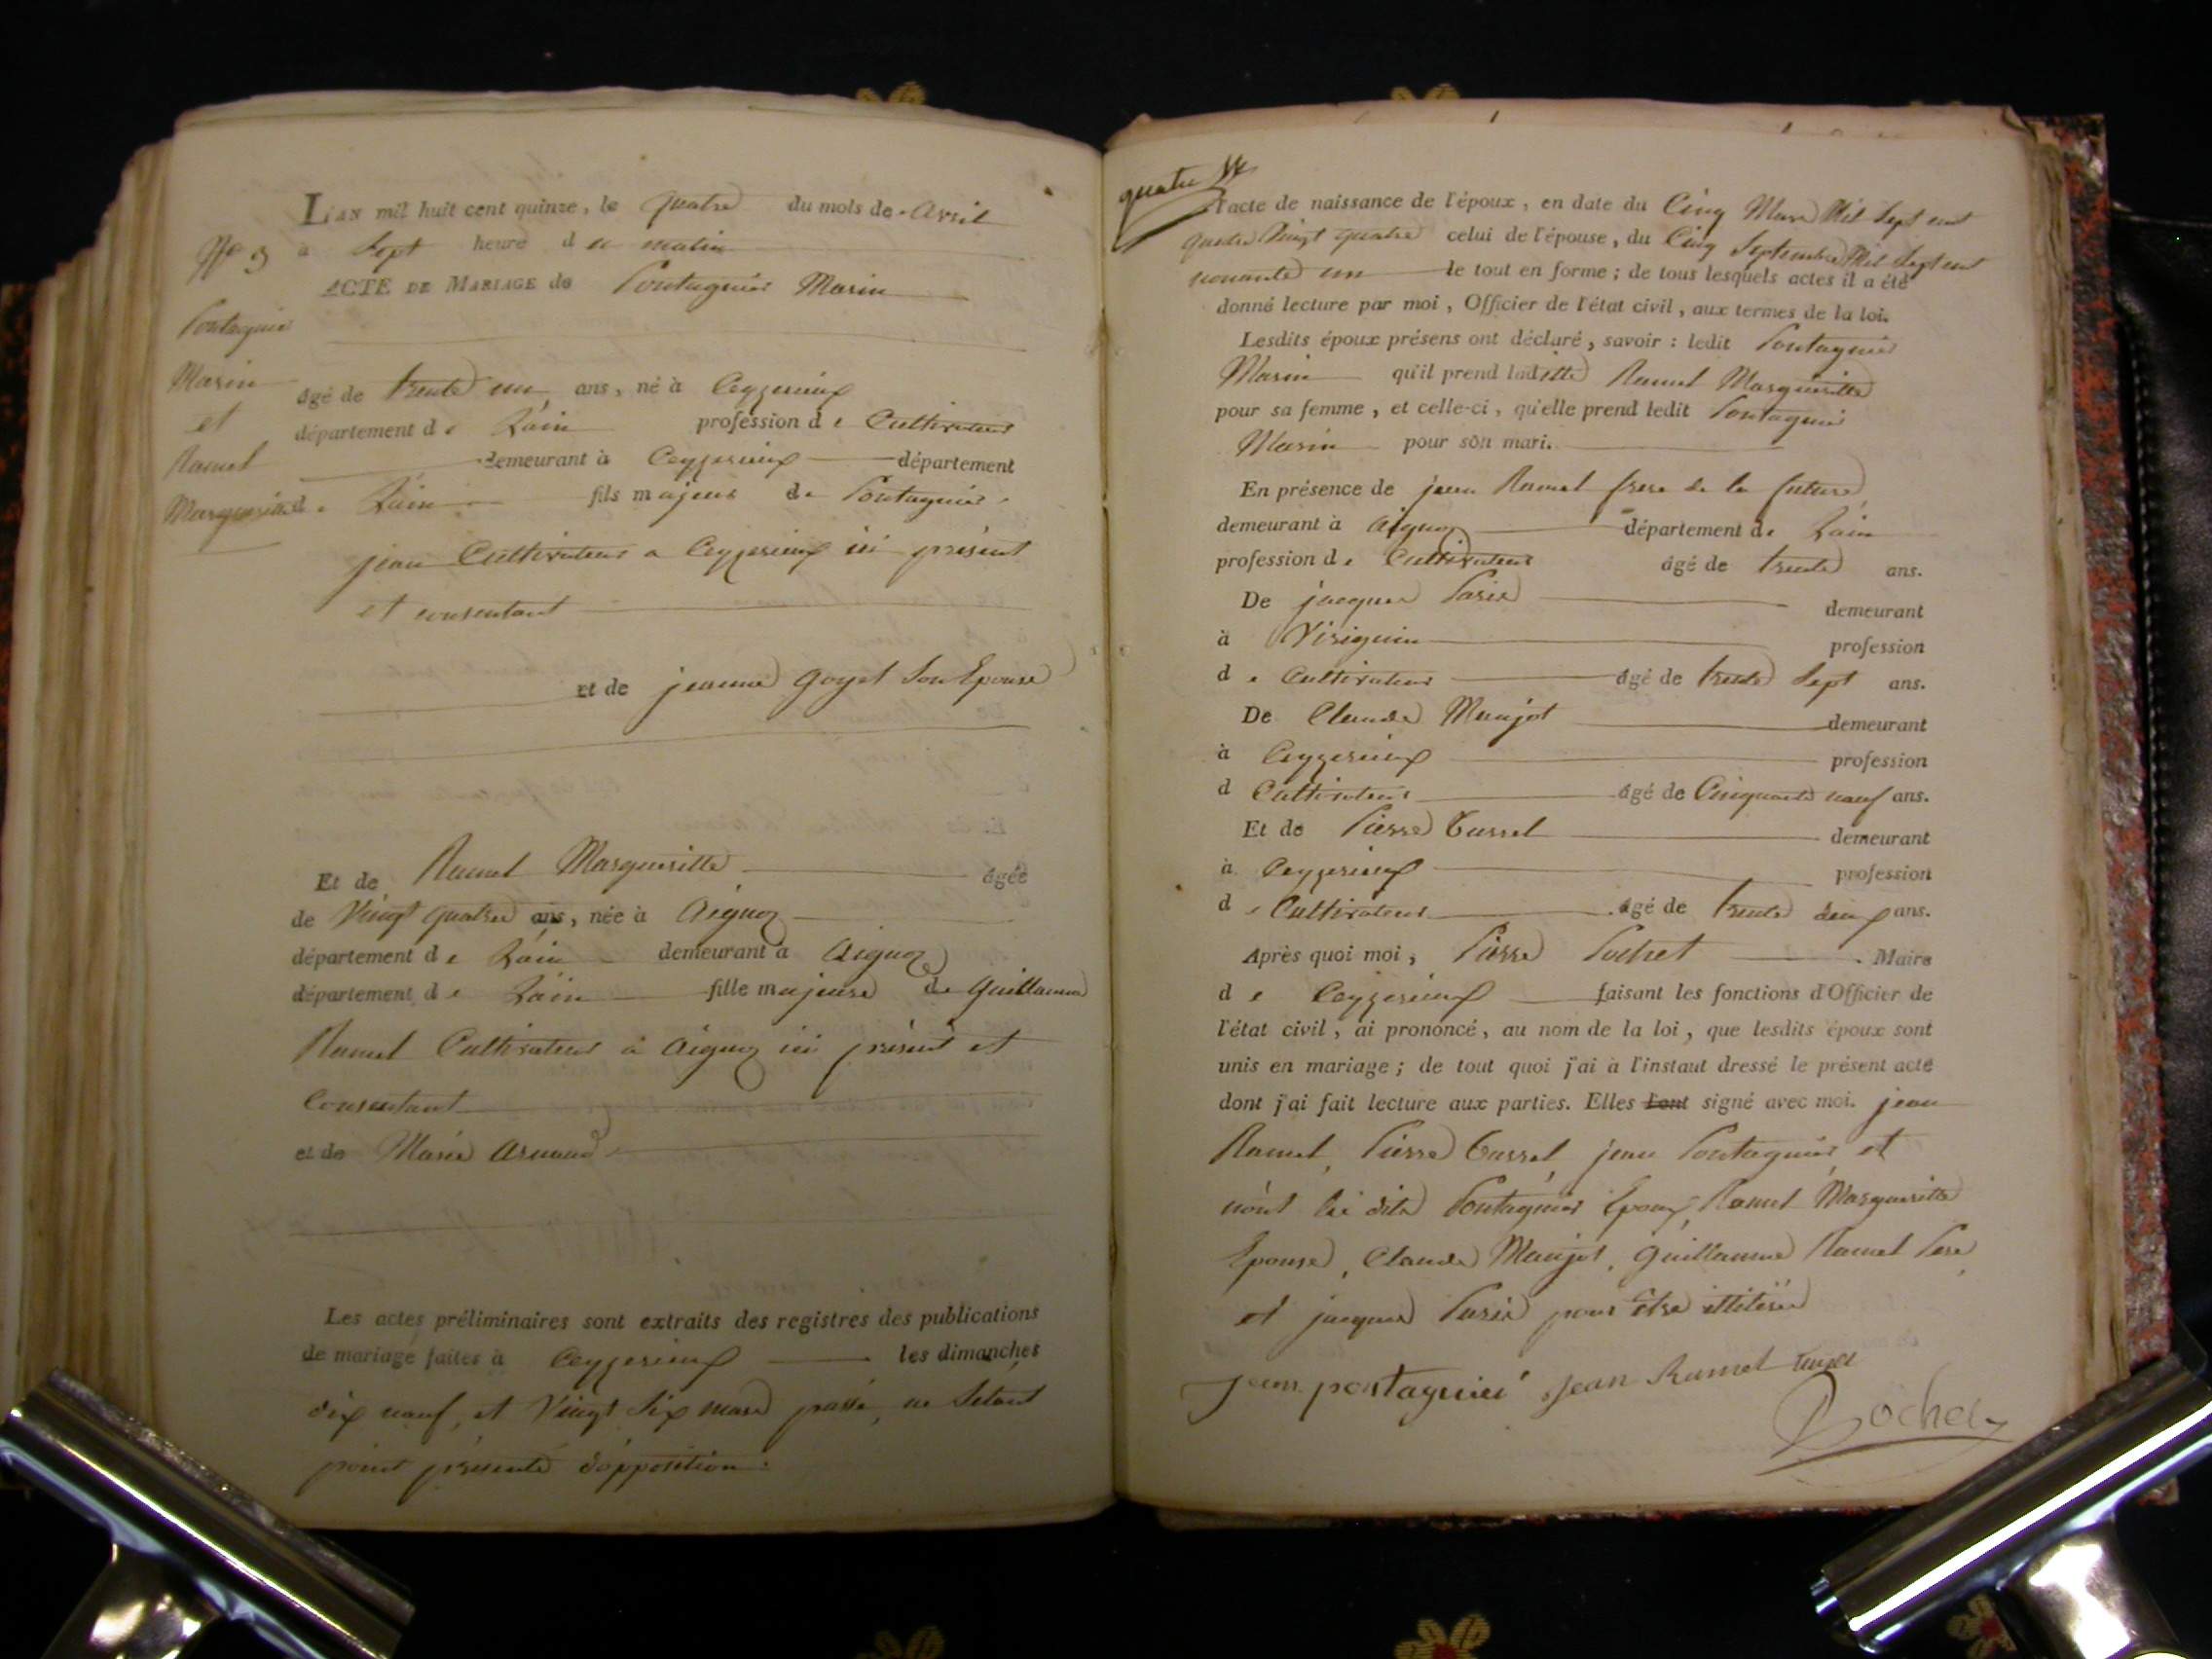 L'an mil huit cent quinze, le quatre du mois de Avril
N.o 3 à Sept heure du matin
ACTE DE MARIAGE de Pontagnier Marin
Pontagnier
Marin
et
Ramel
Margueritte
âgé de trente un ans, né à Ceyzerieux
département de Lain profession de Cultivateur
demeurant à Ceyzerieux département
de Lain fils majeur de Pontagnier
jean Cultivateur a Ceyzerieux ici présent
et consentant
et de jeanne goyet Son Epouse
Et de Ramel Margueritte âgée
de Vingt quatre ans, née à Aignoz
département de Lain demeurant à Aignoz
département de Lain fille majeure de guillaume
Ramel Cultivateur à Aignoz ici présent et
Consentant
et de Marie Arnaud
Les actes préliminaires sont extraits des registres des publications
de mariage faites à Ceyzerieux les dimanches
dix neuf, et Vingt Six mars passé, ne Setant
point présenté d'opposition.
quatre
l'acte de naissance de l'époux, en date du Cinq Mars Mil Sept cent
quatre Vingt quatre celui de l'épouse, du Cinq Septembre Mil Sept cent
nonante un le tout en forme ; de tous lesquels actes il a été
donné lecture par moi, Officier de l'état civil, aux termes de la loi.
Lesdits époux présens ont déclaré, savoir : ledit Pontagnier
Marin qu'il prend laditte Ramel Margueritte
pour sa femme, et celle-ci, qu'elle prend ledit Pontagnier
Marin pour son mari.
En présence de jean Ramel frere de la future
demeurant à Aignoz département de Lain
profession de Cultivateur âgé de trente ans.
De jacques Parie demeurant
à Virignin profession
de Cultivateur âgé de trente Sept ans.
De Claude Maujot demeurant
à Ceyzerieux profession
d Cultivateur âgé de Cinquante neuf ans.
Et de Pierre Tussel demeurant
à Ceyzerieux profession
de Cultivateur âgé de trente deux ans.
Après quoi moi, Pierre Pochet Maire
de Ceyzerieux faisant les fonctions d'Officier de
l'état civil, ai prononcé, au nom de la loi, que lesdits époux sont
unis en mariage ; de tout quoi j'ai à l'instant dressé le présent acte
dont j'ai fait lecture aux parties. Elles l'ont signé avec moi. jean
Ramel, Pierre Tussel, jean Pontagnier et
nont les dits Pontagnier Epoux, Ramel Margueritte
Epouse, Claude Maujot, guillaume Ramel Pere,
et jacques Parie pour être illiterés
Jean pontagnier Jean Ramel
Pochet